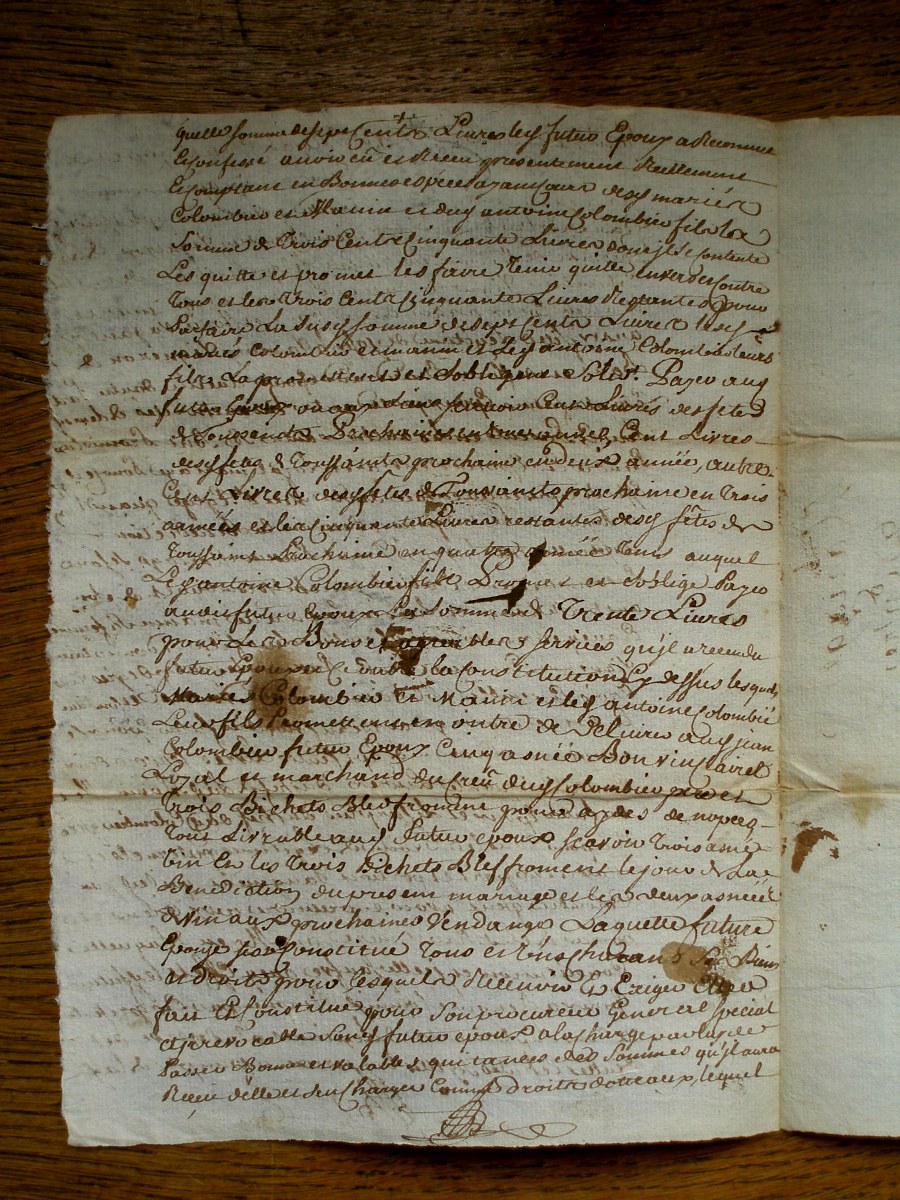 quelle somme de sept Cents Livres lesd futur Epoux a Reconnu
Et Confessé avoir eü et Receu presentement Reellement
Et Comptant en Bonnes especes ayant cours desds mariés
Colombier et Manin et dud antoine Colombier fils la
Somme de Trois Cents Cinquante Livres dont il se contente
Les quitte et promet les faire tenir quitte Envers et Contre
Tous et les Trois Cents Cinquante Livres Restantes pour
Parfaire La Susd somme de sept Cents Livres lesds
mariés Colombier et manin et Led antoine Colombier leurs
fils La promettent et Sobligent Solidt. Payer aud
futur Epoux ou aux Siens scavoir Cent Livres des fetes
de Toussaints Prochaines en une année, Cent Livres
desd fetes de Toussaints prochaine en deux année, autre
Cent Livres desd fêtes de Toussaints prochaine en Trois
années et les Cinquante Livres restantes desd fêtes de
Toussaint Prochaine en quatre année Tems auquel
Led antoine Colombier fils Promet et soblige Payer
audit futur epoux La Somme de Trente Livres
pour Les Bons et agreables services qu'il a rendu
futur Epoux et outre la Constitution Cy dessus lesquels
Mariés Colombier et Manin et led antoine Colombié
Leur fils Promettent en outre de Delivrer aud jean
Colombier futur Epoux Cinq asnée Bon vin Clairet
Loyal et marchand du Creu dud Colombier pere et
Trois Bichets Bled froment pour aydes de nopces
Tout Livrable aud futur epoux scavoir Trois anée
vin Et les Trois Bichets Bled froment le jour de La
Benediction du present mariage et les deux asnées
de vin aux prochaines Vendange Laquelle future
Epouse Constitue Tous et uns Chacuns Ses Biens
et droits pour lesquels Recevoir Et Exiger Elle a
fait Et Constitue pour Son procureur General special
et irrevocable Sond futur epoux a la Charge par luy de
Passer Bonne et valable quitances des Sommes qu'il aura
Receu delle et sen Charger Comme droits dotteaux, lequel